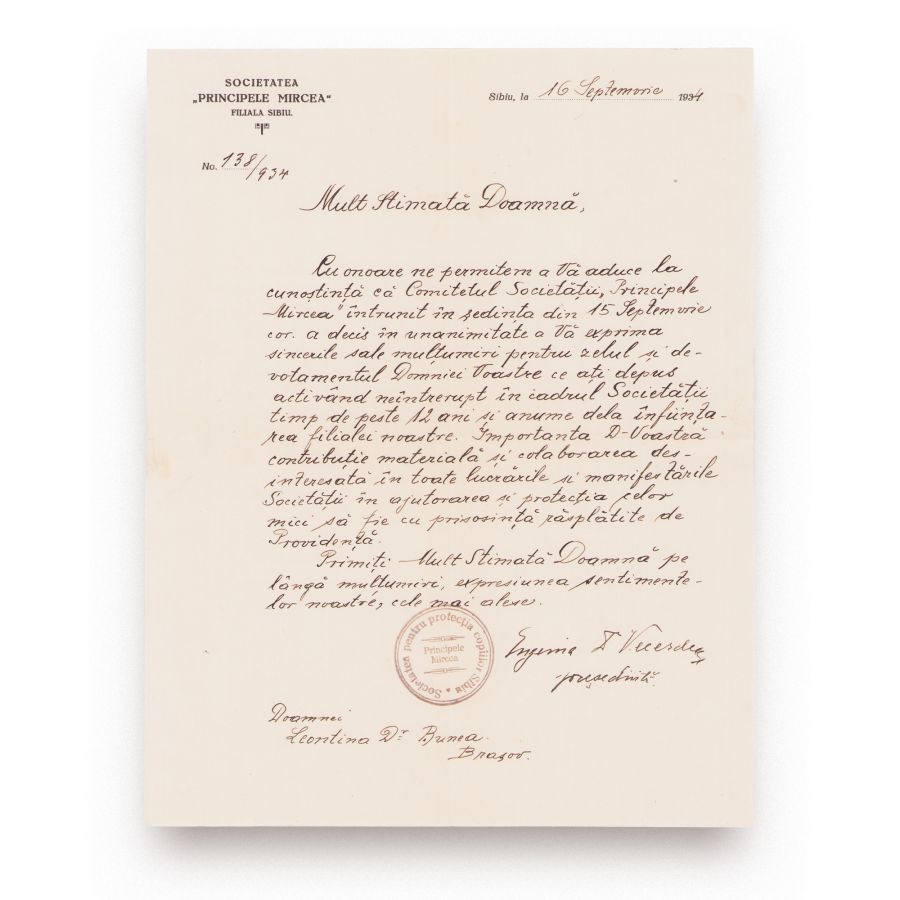 SOCIETATEA
„PRINCIPELE MIRCEA“
FILIALA SIBIU.
Sibiu, la 16 Septemvrie 1934
No. 138/934
Mult Stimată Doamnă,
Cu onoare ne permitem a Vă aduce la
cunoștință că Comitetul Societății, Principele
Mircea" întrunit în ședința din 15 Septemvrie
cor. a decis în unanimitate a Vă exprima
sincerile sale mulțumiri pentru zelul și de-
votamentul Domniei Voastre ce ați depus
activând neîntrerupt în cadrul Societății
timp de peste 12 ani și anume dela înființa-
rea filialei noastre. Importanta D-Voastră
contribuție materială și colaborarea des-
interesată în toate lucrările și manifestările
Societății în ajutorarea și protecția celor
mici să fie cu prisosință răsplătite de
Providență.
Primiți Mult Stimată Doamnă pe
lângă mulțumiri, expresiunea sentimente-
lor noastre, cele mai alese.
Societatea pentru protecția copiilor Sibiu
Principele
Mircea
președintă.
Doamnei
Leontina Dr Bunea
Brașov.